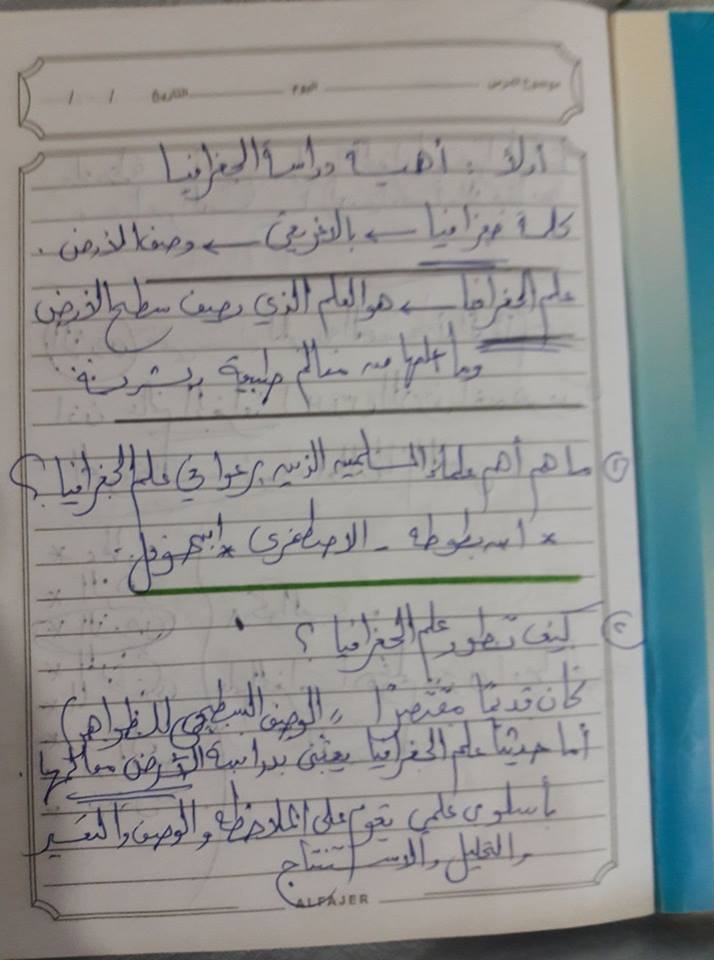 موضوع الدرس اليوم التاريخ / /
أولاً : أهمية دراسة الجغرافيا
كلمة جغرافيا ← بالاغريقي ← وصف الأرض .
علم الجغرافيا ← هو العلم الذي يصف سطح الأرض
وما عليها من معالم طبيعية وبشرية
① ما هم أهم علماء المسلمين الذين برعوا في علم الجغرافيا ؟
* ابن بطوطه - الاصطخري * ابن حوقل .
② كيف تطور علم الجغرافيا ؟
كان قديمًا مقتصرًا الوصف السطحي للظواهر )
أما حديثًا علم الجغرافيا يعتنى بدراسة الأرض معالمها .
بأسلوب علمي يقوم على الملاحظه والوصف والتفسير
والتحليل والاستنتاج
ALFAJER